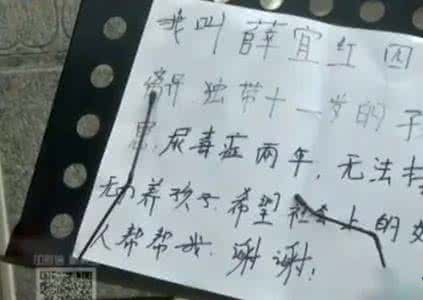 我叫薛宜红因
离异独带十一岁的子
患尿毒症两年,无法
无力养孩子.希望社会上的好
人帮帮我.谢谢!